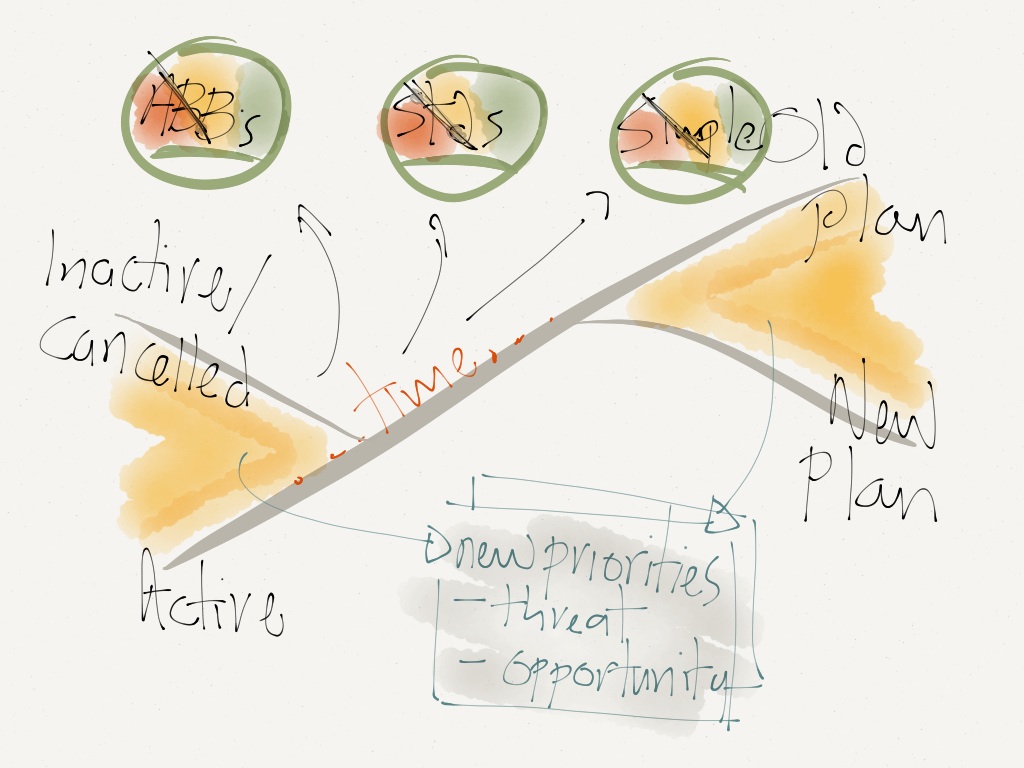 ABB's
Stds
Simple
Old
plan
Inactive/
Cancelled
time
New
Plan
Active
new priorities
- threat
- opportunity